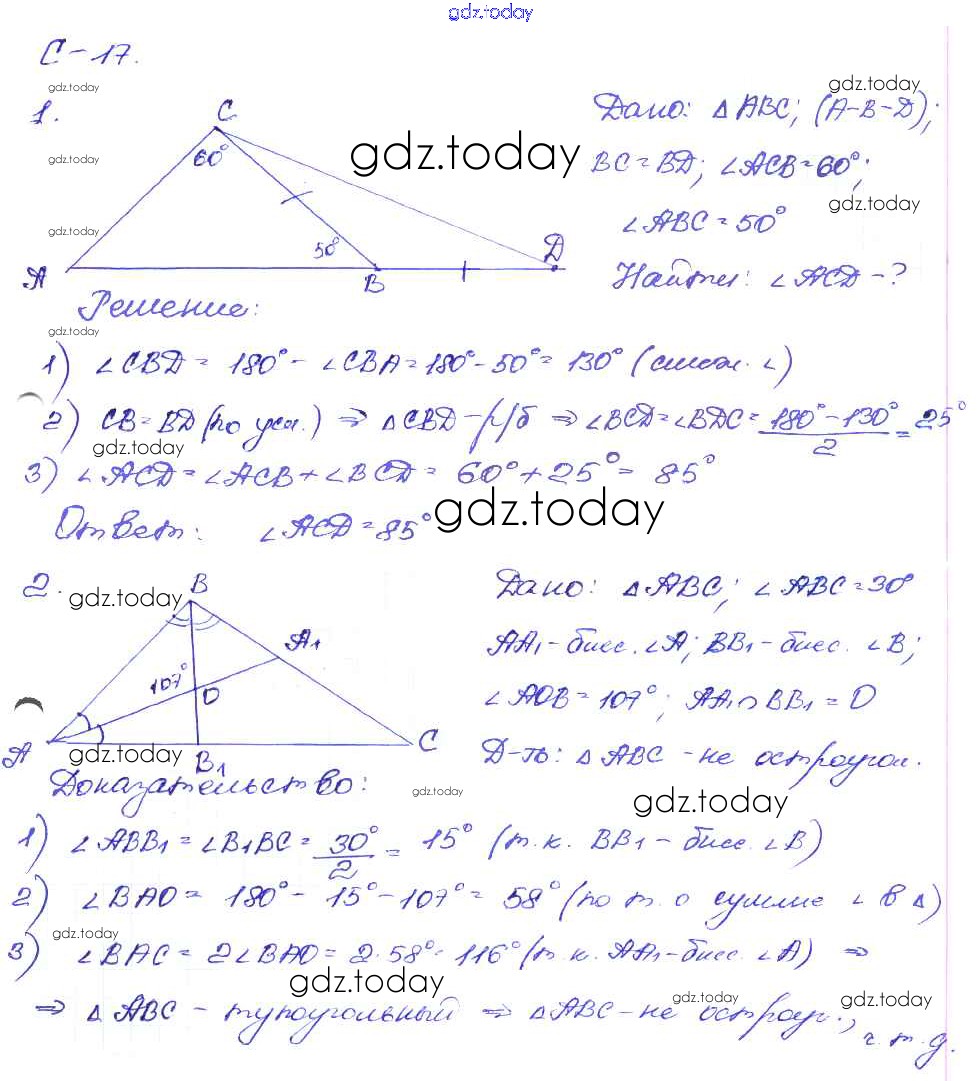 gdz.today
С-17.
gdz.today
1.
C
60°
50°
A
B
D
gdz.today
gdz.today
gdz.today
Дано: △ABC; (A-B-D);
BC=BD; ∠ACB=60°;
∠ABC=50°
Найти: ∠ACD-?
gdz.today
gdz.today
Решение:
gdz.today
1) ∠CBD = 180° - ∠CBA = 180° - 50° = 130° (смеж. ∠)
2) CB=BD (по усл.) ⇒ △CBD-р/б ⇒ ∠BCD=∠BDC= (180°-130°)/2 = 25°
gdz.today
3) ∠ACD = ∠ACB + ∠BCD = 60° + 25° = 85°
Ответ: ∠ACD = 85°
gdz.today
2.
gdz.today
B
A1
107°
O
A
B1
C
Дано: △ABC; ∠ABC=30°
AA1-бисс. ∠A; BB1-бисс. ∠B;
∠AOB=107°; AA1∩BB1=O
Д-ть: △ABC-не остроугол.
gdz.today
Доказательство:
gdz.today
gdz.today
1) ∠ABB1 = ∠B1BC = 30°/2 = 15° (т.к. BB1-бисс. ∠B)
2) ∠BAO = 180° - 15° - 107° = 58° (по т. о сумме ∠ в △)
gdz.today
3) ∠BAC = 2∠BAO = 2·58° = 116° (т.к. AA1-бисс. ∠A) ⇒
gdz.today
⇒ △ABC - тупоугольный ⇒ △ABC-не остроуг.,
gdz.today
gdz.today
ч.т.д.